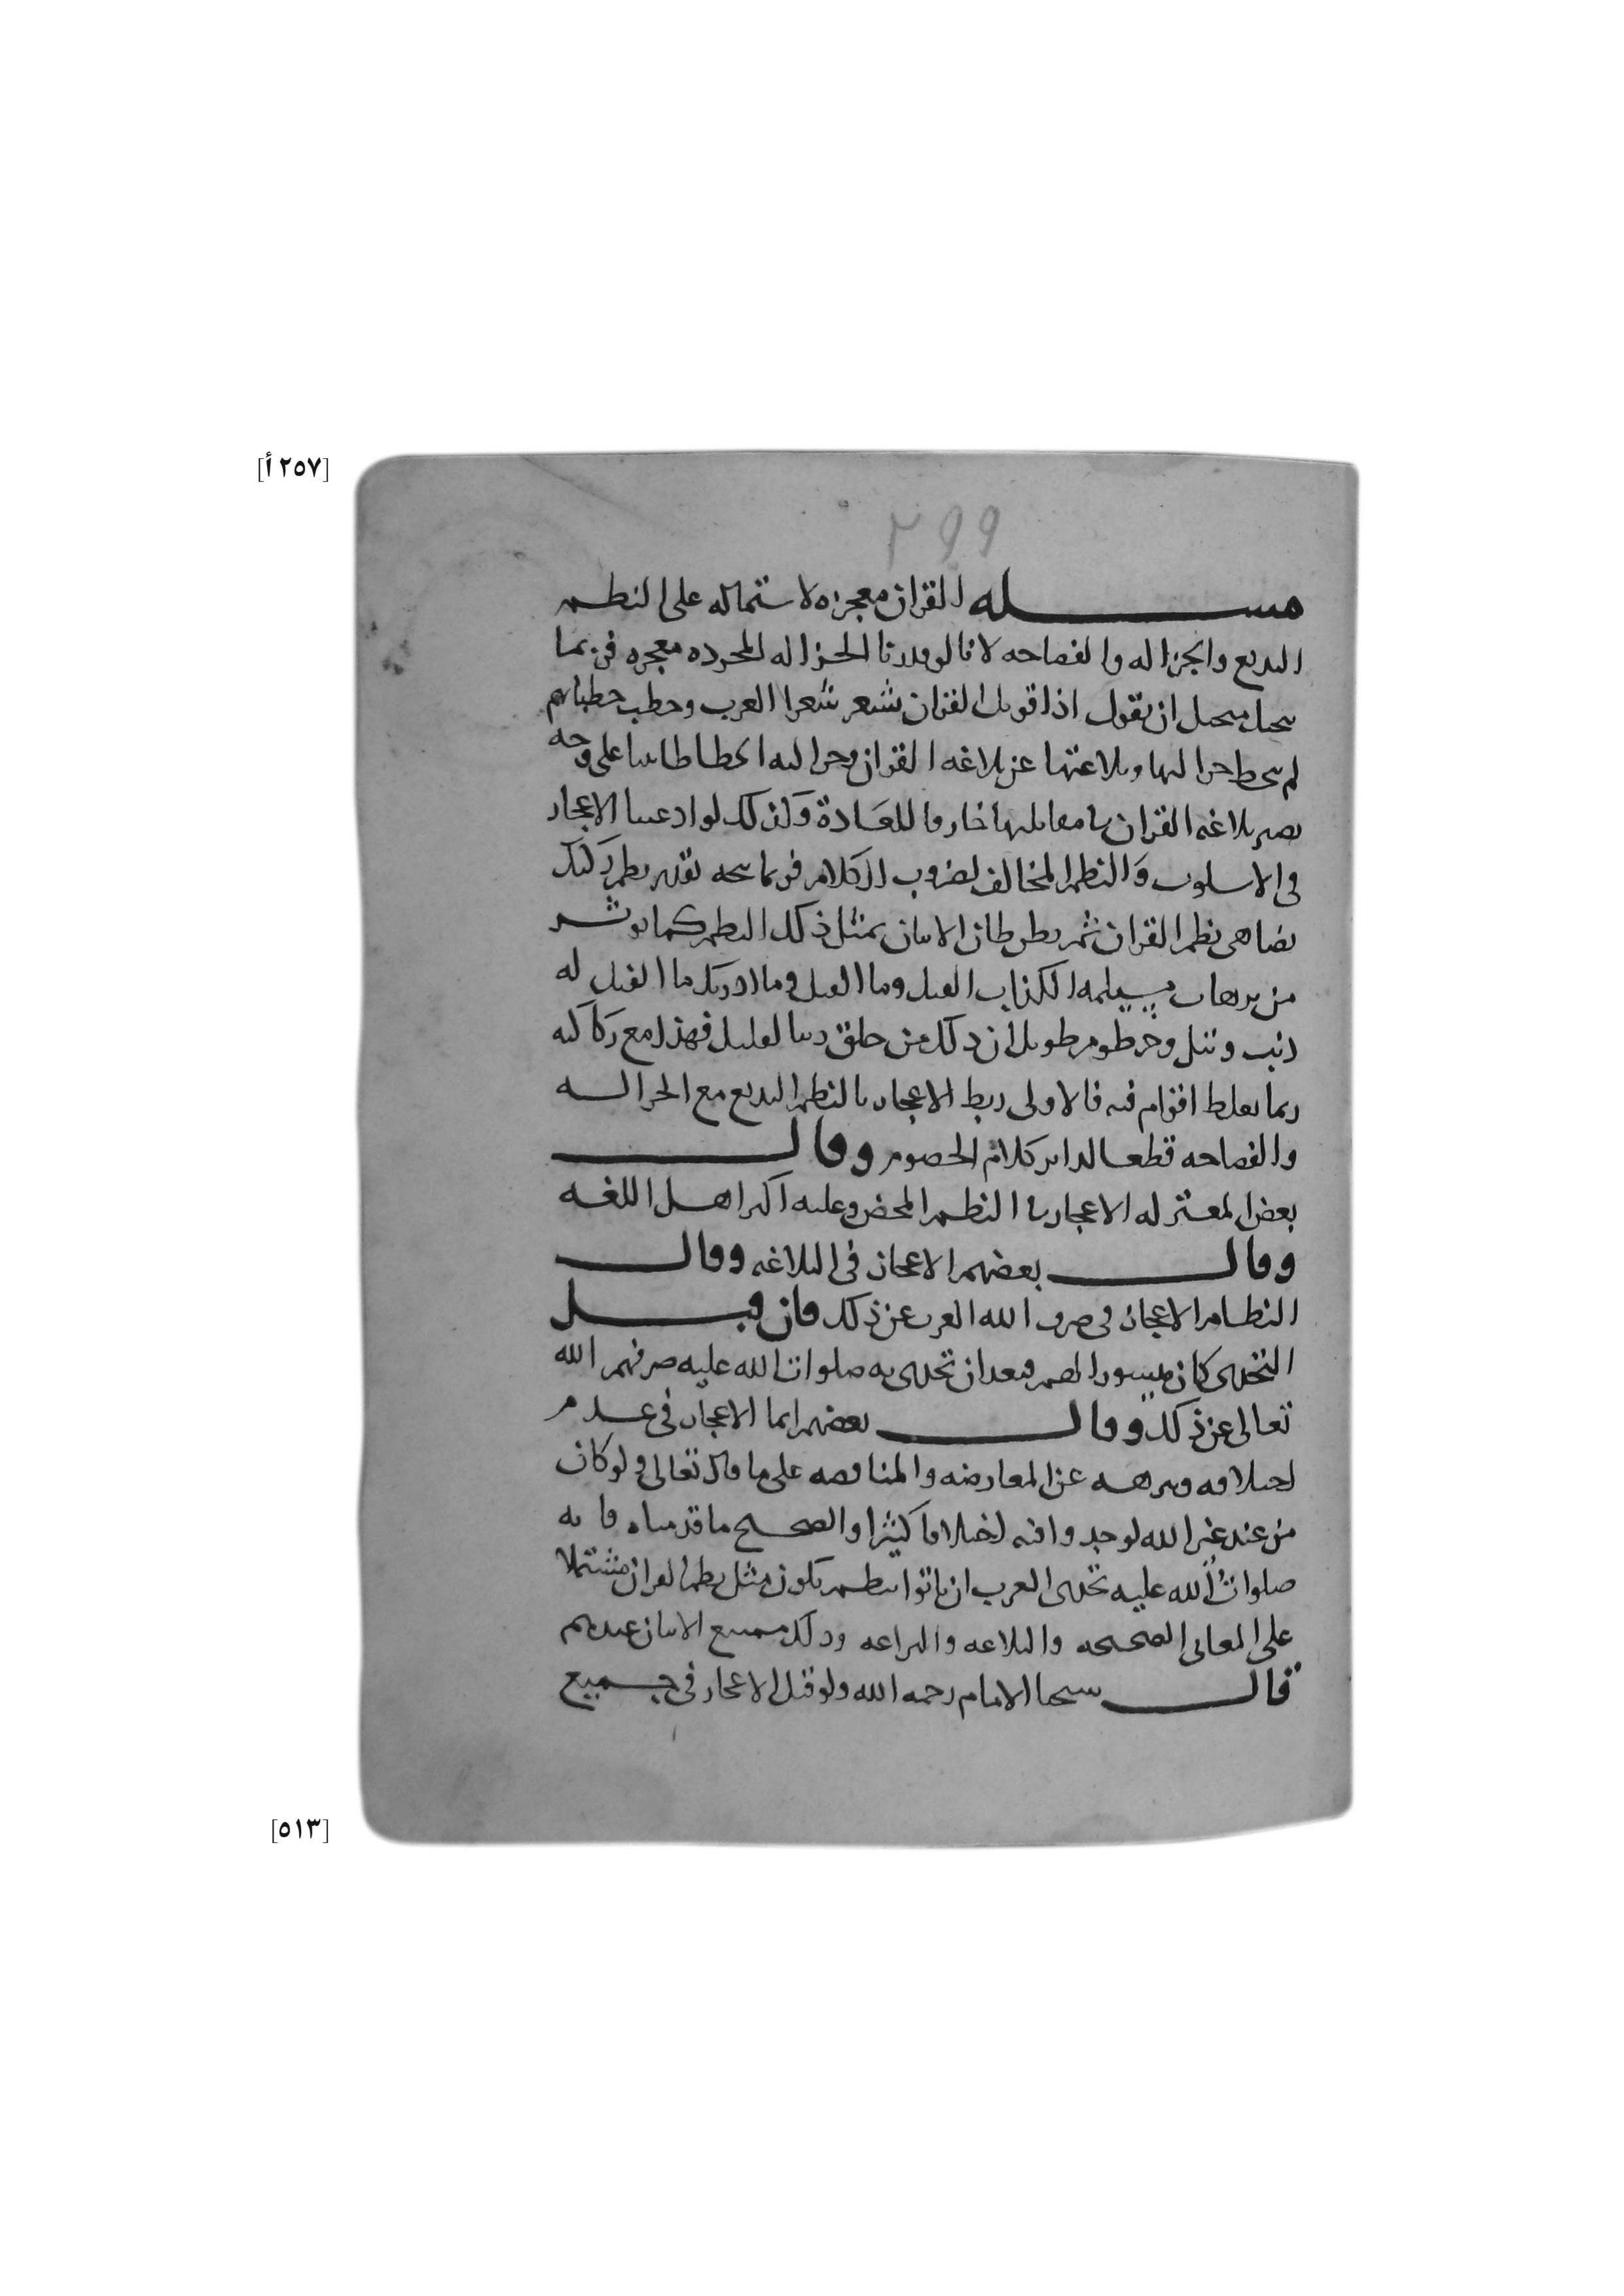 [٢٥٧ أ]
٢٩٩
مسله القران معجزه لاشتماله على النظم
البديع والجزاله والفصاحه لانا لو قدرنا الجزاله المجرده معجزه فربما
يتخيل متخيل ان يقول اذا قوبل القران بشعر شعرا العرب وخطب خطبائهم
لم ينحط جزالتها وبلاغتها عن بلاغه القران وجزالته انحطاطا بينا على وجه
يصير بلاغه القران بمقابلتها خارقا للعَادة وَلذلك لو ادعينا الاعجاز
في الاسلوب وَالنظم المخالف لضروب الكلام فربما يتجه تقدير نظم ركيك
يضاهى نظم القران ثم يظن ظان الاتيان بمثل ذلك النظم كما يوثر
من ترهات مسيلمه الكذاب الفيل وما الفيل وما ادريك ما الفيل له
ذنب وثيل وخرطوم طويل ان ذلك من خلق ربنا لقليل فهذا مع ركاكته
ربما يغلط اقوام فيه فالاولى ربط الاعجاز بالنظم البديع مع الجزاله
والفصاحه قطعا لدابر كلام الخصوم وقال
بعض المعتزله الاعجاز بالنظم المحض وعليه اكثر اهل اللغه
وقال بعضهم الاعجاز في البلاغه وقال
النظام الاعجاز في صرف الله العرب عن ذلك فان قبل
التحدى كان ميسورا لهم فبعد ان تحدى به صلوات الله عليه صرفهم الله
تعالى عن ذلك وقال بعضهم انما الاعجاز في عدم
اختلافه وتنزهه عن المعارضه والمناقضه على ما قال تعالى ولو كان
من عند غير الله لوجدوا فيه اختلافا كثيرا والصحيح ما قدمناه فانه
صلواتُ الله عليه تحدى العرب ان ياتوا بنظم يكون مثل نظم القران مشتملا
على المعانى الصحيحه والبلاغه والبراعه وذلك ممتنع الاتيان عندهم
قال شيخنا الامام رحمه الله ولو قيل الاعجاز في جميع
[٥١٣]